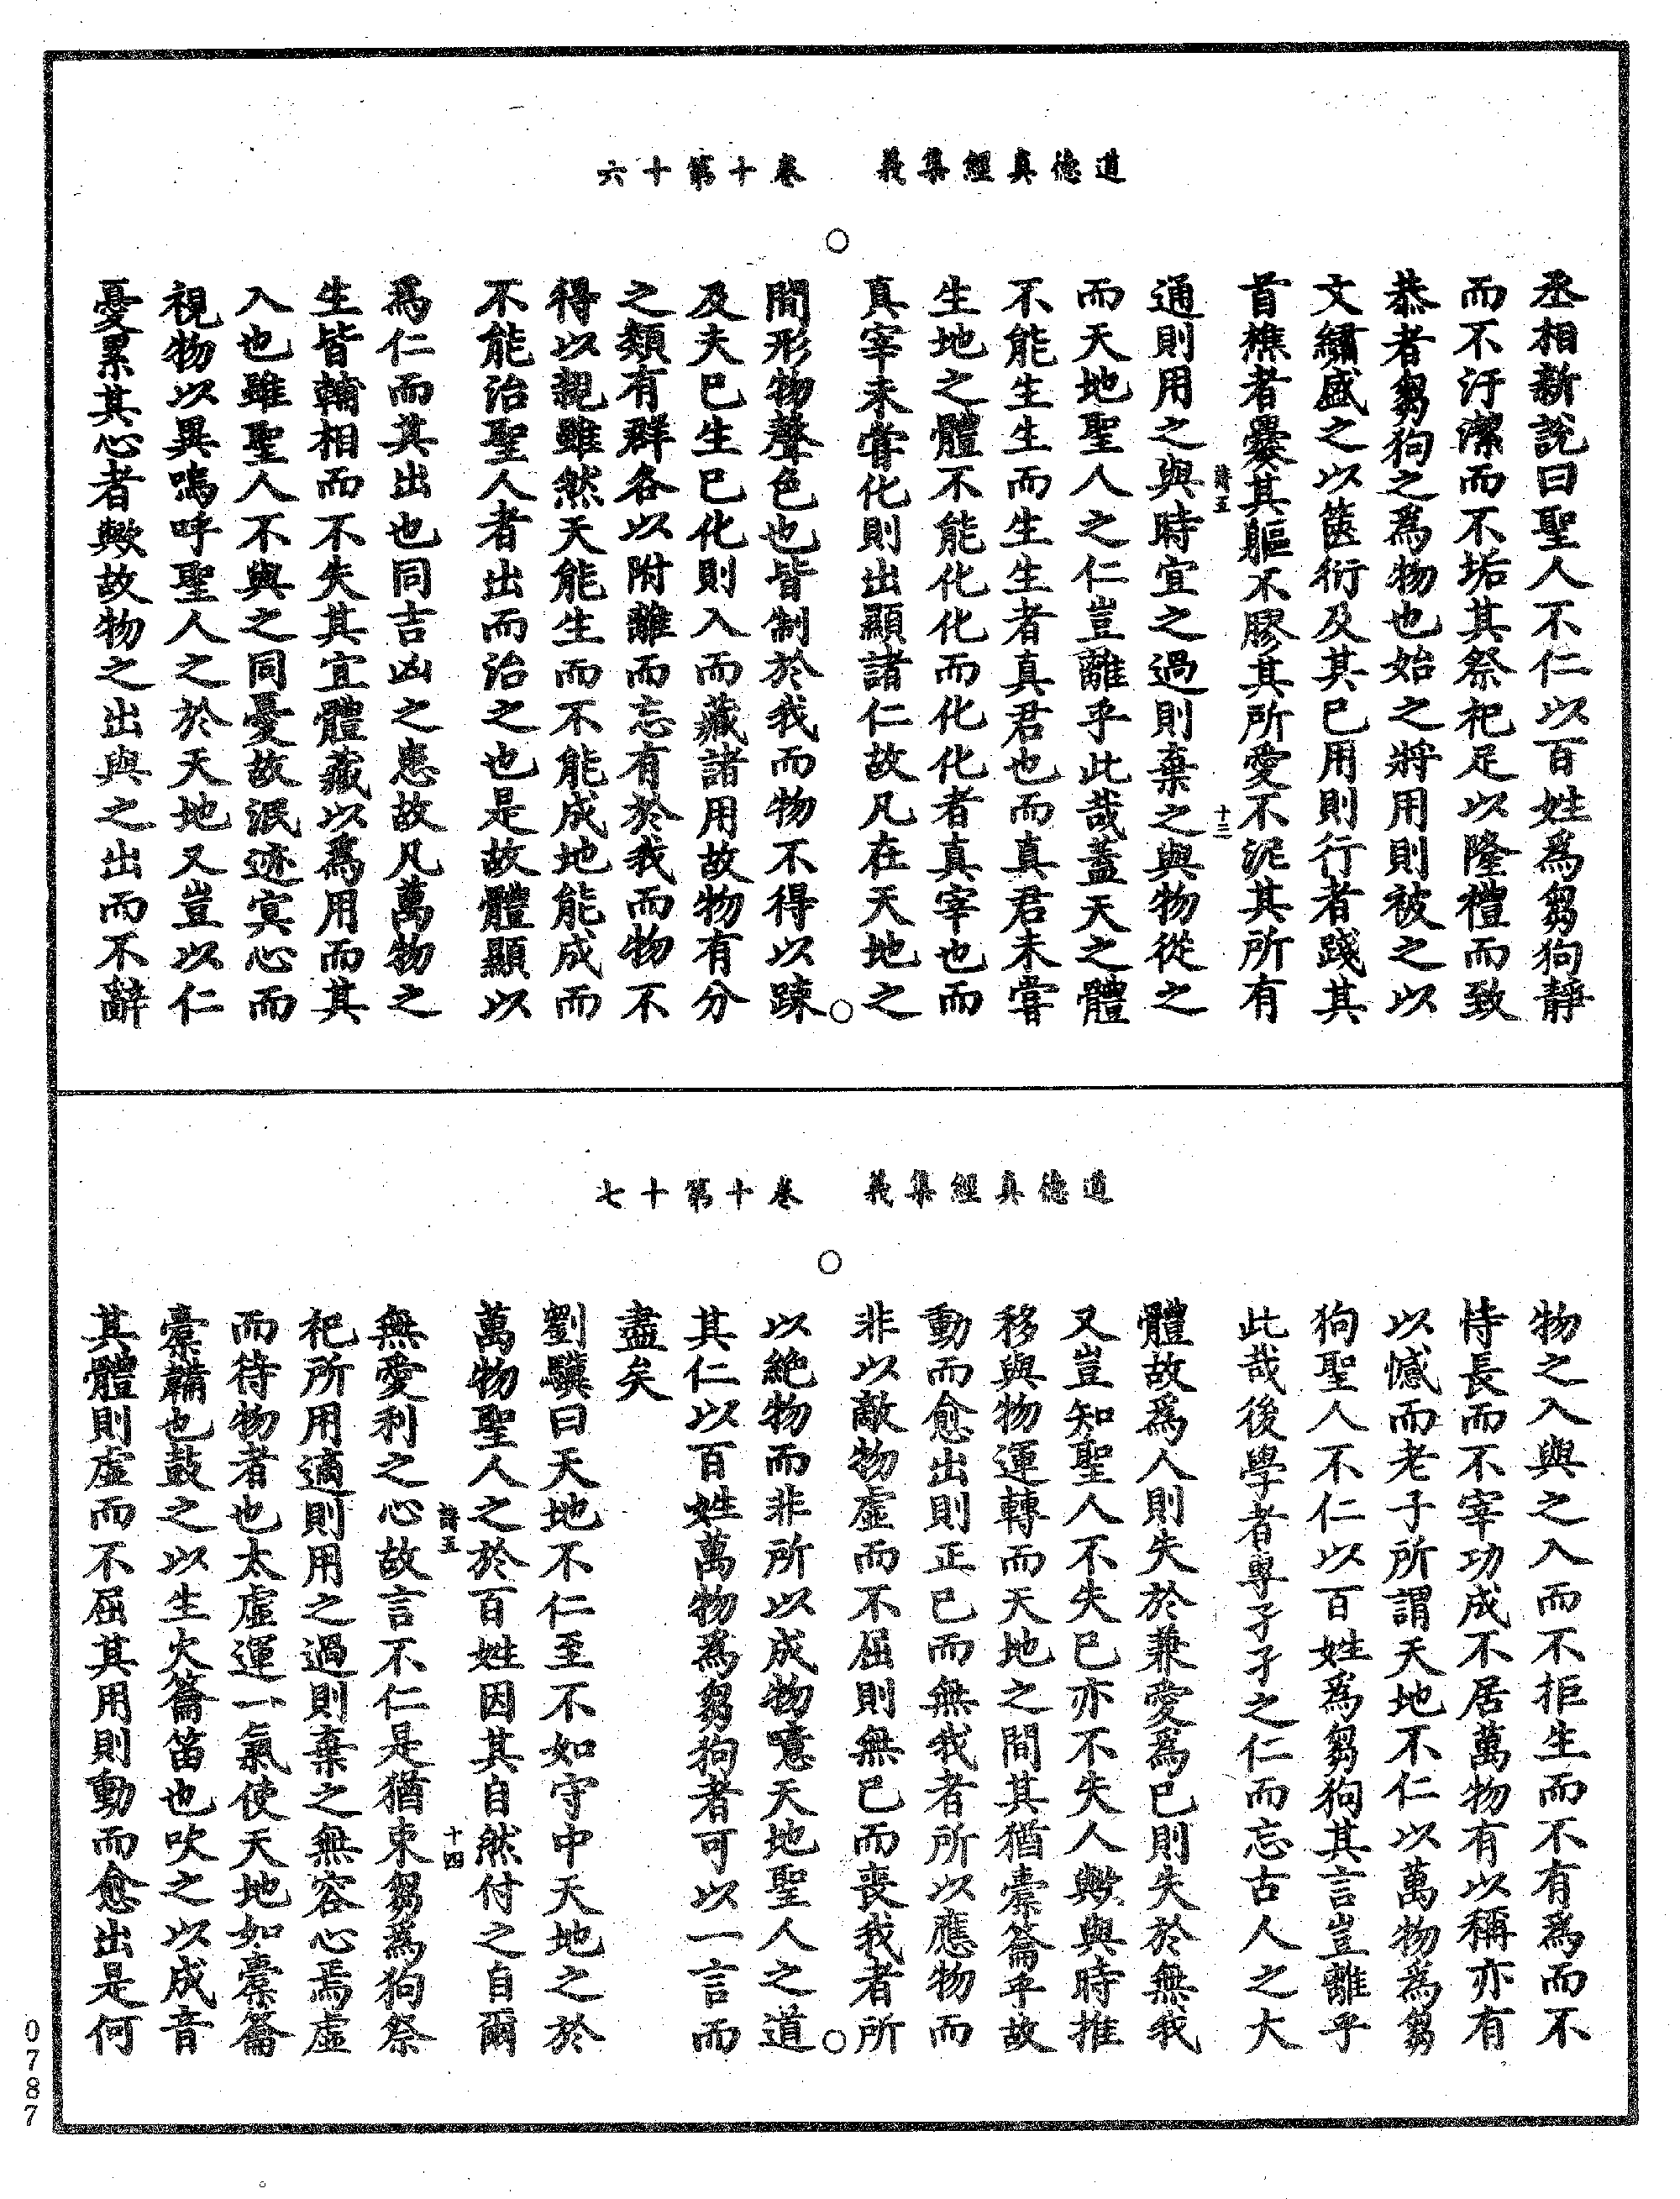 道德真經集義　卷十第十六
丞相新說曰聖人不仁以百姓爲芻狗靜
而不汙潔而不垢其祭祀足以隆禮而致
恭者芻狗之爲物也始之將用則被之以
文繡盛之以篋衍及其已用則行者踐其
首樵者爨其軀不膠其所愛不泥其所有
詩五　十三
通則用之與時宜之過則棄之與物從之
而天地聖人之仁豈離乎此哉蓋天之體
不能生生而生生者真君也而真君未嘗
生地之體不能化化而化化者真宰也而
真宰未嘗化則出顯諸仁故凡在天地之
間形物聲色也皆制於我而物不得以踈
及夫已生已化則入而藏諸用故物有分
之類有群各以附離而忘有於我而物不
得以親雖然天能生而不能成地能成而
不能治聖人者出而治之也是故體顯以
爲仁而其出也同吉凶之患故凡萬物之
生皆輔相而不失其宜體藏以爲用而其
入也雖聖人不與之同憂故泯迹冥心而
視物以異嗚呼聖人之於天地又豈以仁
憂累其心者歟故物之出與之出而不辭
道德真經集義　卷十第十七
物之入與之入而不拒生而不有爲而不
恃長而不宰功成不居萬物有以稱亦有
以憾而老子所謂天地不仁以萬物爲芻
狗聖人不仁以百姓爲芻狗其言豈離乎
此哉後學者專孑孑之仁而忘古人之大
體故爲人則失於兼愛爲己則失於無我
又豈知聖人不失己亦不失人歟與時推
移與物運轉而天地之間其猶橐籥乎故
動而愈出則正己而無我者所以應物而
非以敵物虛而不屈則無已而喪我者所
以絶物而非所以成物噫天地聖人之道
其仁以百姓萬物爲芻狗者可以一言而
盡矣
劉驥曰天地不仁至不如守中天地之於
萬物聖人之於百姓因其自然付之自爾
詩五　十四
無愛利之心故言不仁是猶束芻爲狗祭
祀所用適則用之過則棄之無容心焉虛
而待物者也太虛運一氣使天地如橐籥
橐鞴也鼓之以生火籥笛也吹之以成音
其體則虛而不屈其用則動而愈出是何
0787